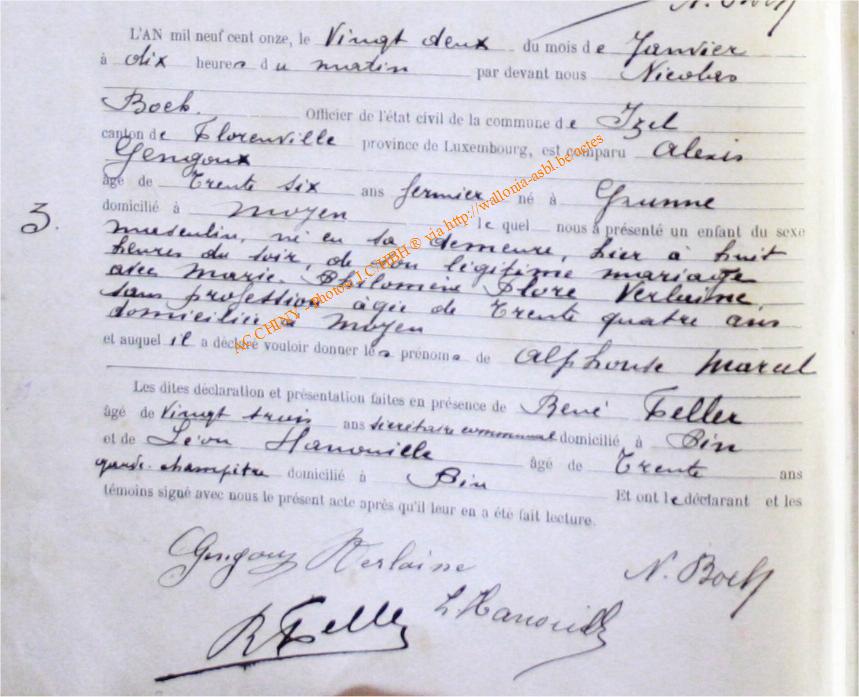 N. Boch
L'AN mil neuf cent onze, le Vingt deux du mois de Janvier
à dix heures du matin par devant nous Nicolas
Boch. Officier de l'état civil de la commune de Izel
canton de Florenville province de Luxembourg, est comparu Alexis
Gengoux
âgé de Trente six ans fermier né à Grunne
domicilié à Moyen lequel nous a présenté un enfant du sexe
3. masculin, né en sa demeure, hier à huit
heures du soir, de son légitime mariage
avec Marie Philomène Flore Verlaine,
sans profession âgée de Trente quatre ans
domiciliée à Moyen
et auquel il a déclaré vouloir donner les prénoms de Alphonse Marcel
Les dites déclaration et présentation faites en présence de René Feller
âgé de Vingt trois ans secrétaire communal domicilié à Pin
et de Léon Hanouille âgé de Trente ans
garde-champêtre domicilié à Pin Et ont le déclarant et les
témoins signé avec nous le présent acte après qu'il leur en a été fait lecture.
Gengoux Verlaine N. Boch
R Feller L Hanouille
AC CHINY - photos J.C HBH ® via http://wallonia-asbl.be/actes